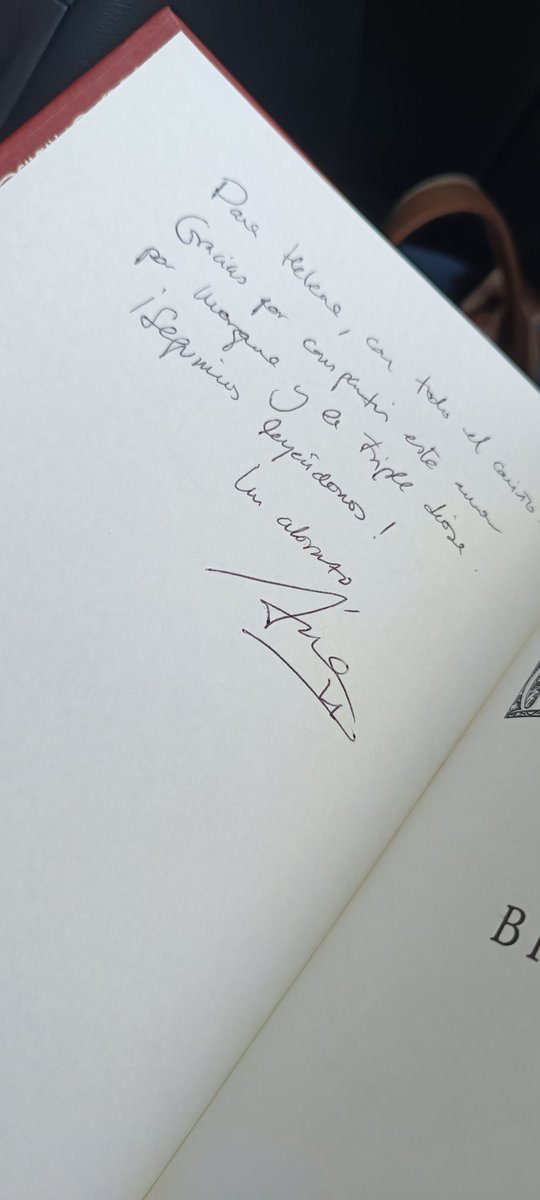 Para Helena, con todo el cariño.
Gracias por compartir este amor
por Morgue y la triple diosa.
¡Seguimos leyéndonos!
Un abrazo
B